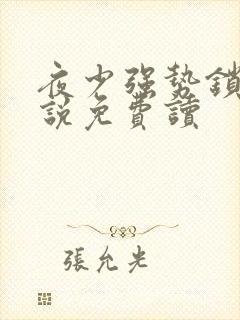 夜少強勢鎖
說免費讀
張允光